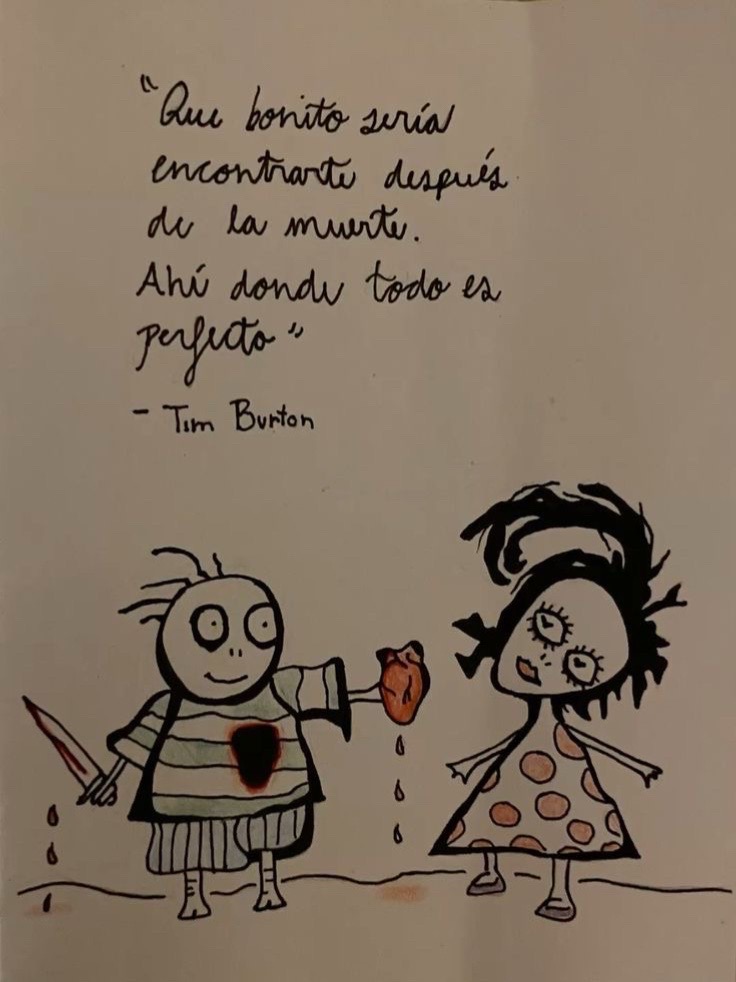 "Que bonito sería
encontrarte después
de la muerte.
Ahí donde todo es
perfecto"
- Tim Burton